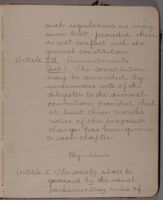 such regulations as may
seem best, provided these
do not conflict with the
general constitution.
Article XIII Amendments
Sect. 1. The Constitution
may be amended by
unanimous vote of the
delegates to the annual
convention, provided that
at least three months
notice of the proposed
change has been given
to each chapter.
By-laws
Article I The society shall be
governed by the usual
parliamentary rules of